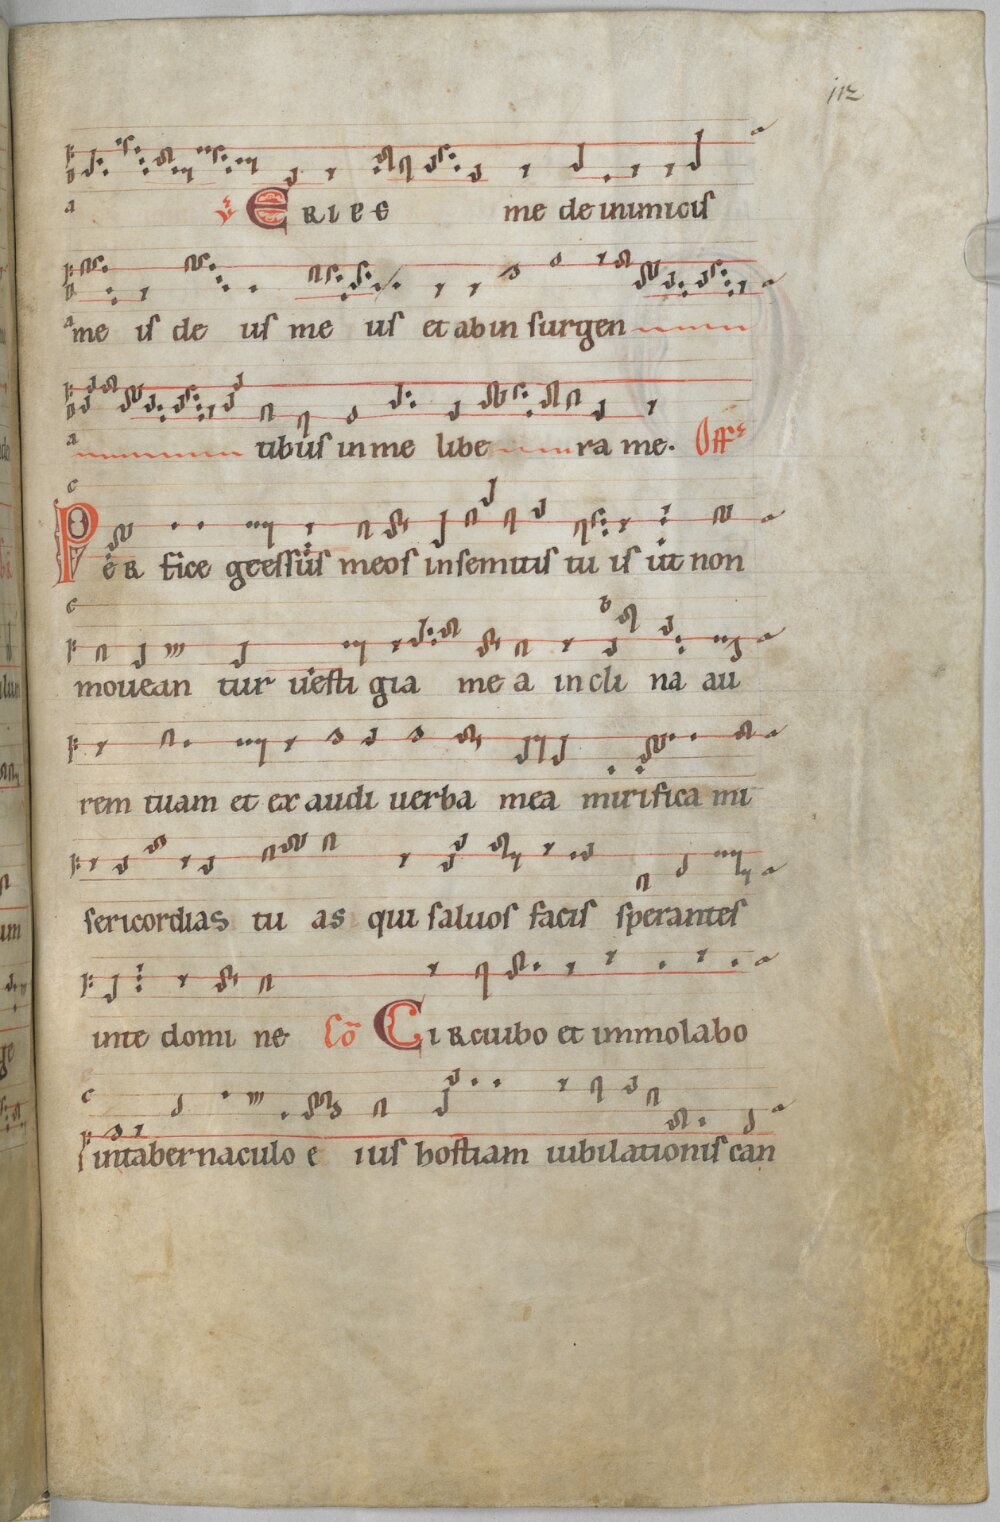 112
a ℣ ERIPE me de inimicis
a me is de us me us et ab in surgen
a tibus in me libe ra me. Off
c PER fice gressus meos in semitis tu is ut non
c mouean tur uesti gia me a in cli na au
rem tuam et ex audi uerba mea mirifica mi
sericordias tu as qui saluos facis sperantes
inte domi ne Cō CIRcuibo et immolabo
c in tabernaculo e ius hostiam iubilationis can